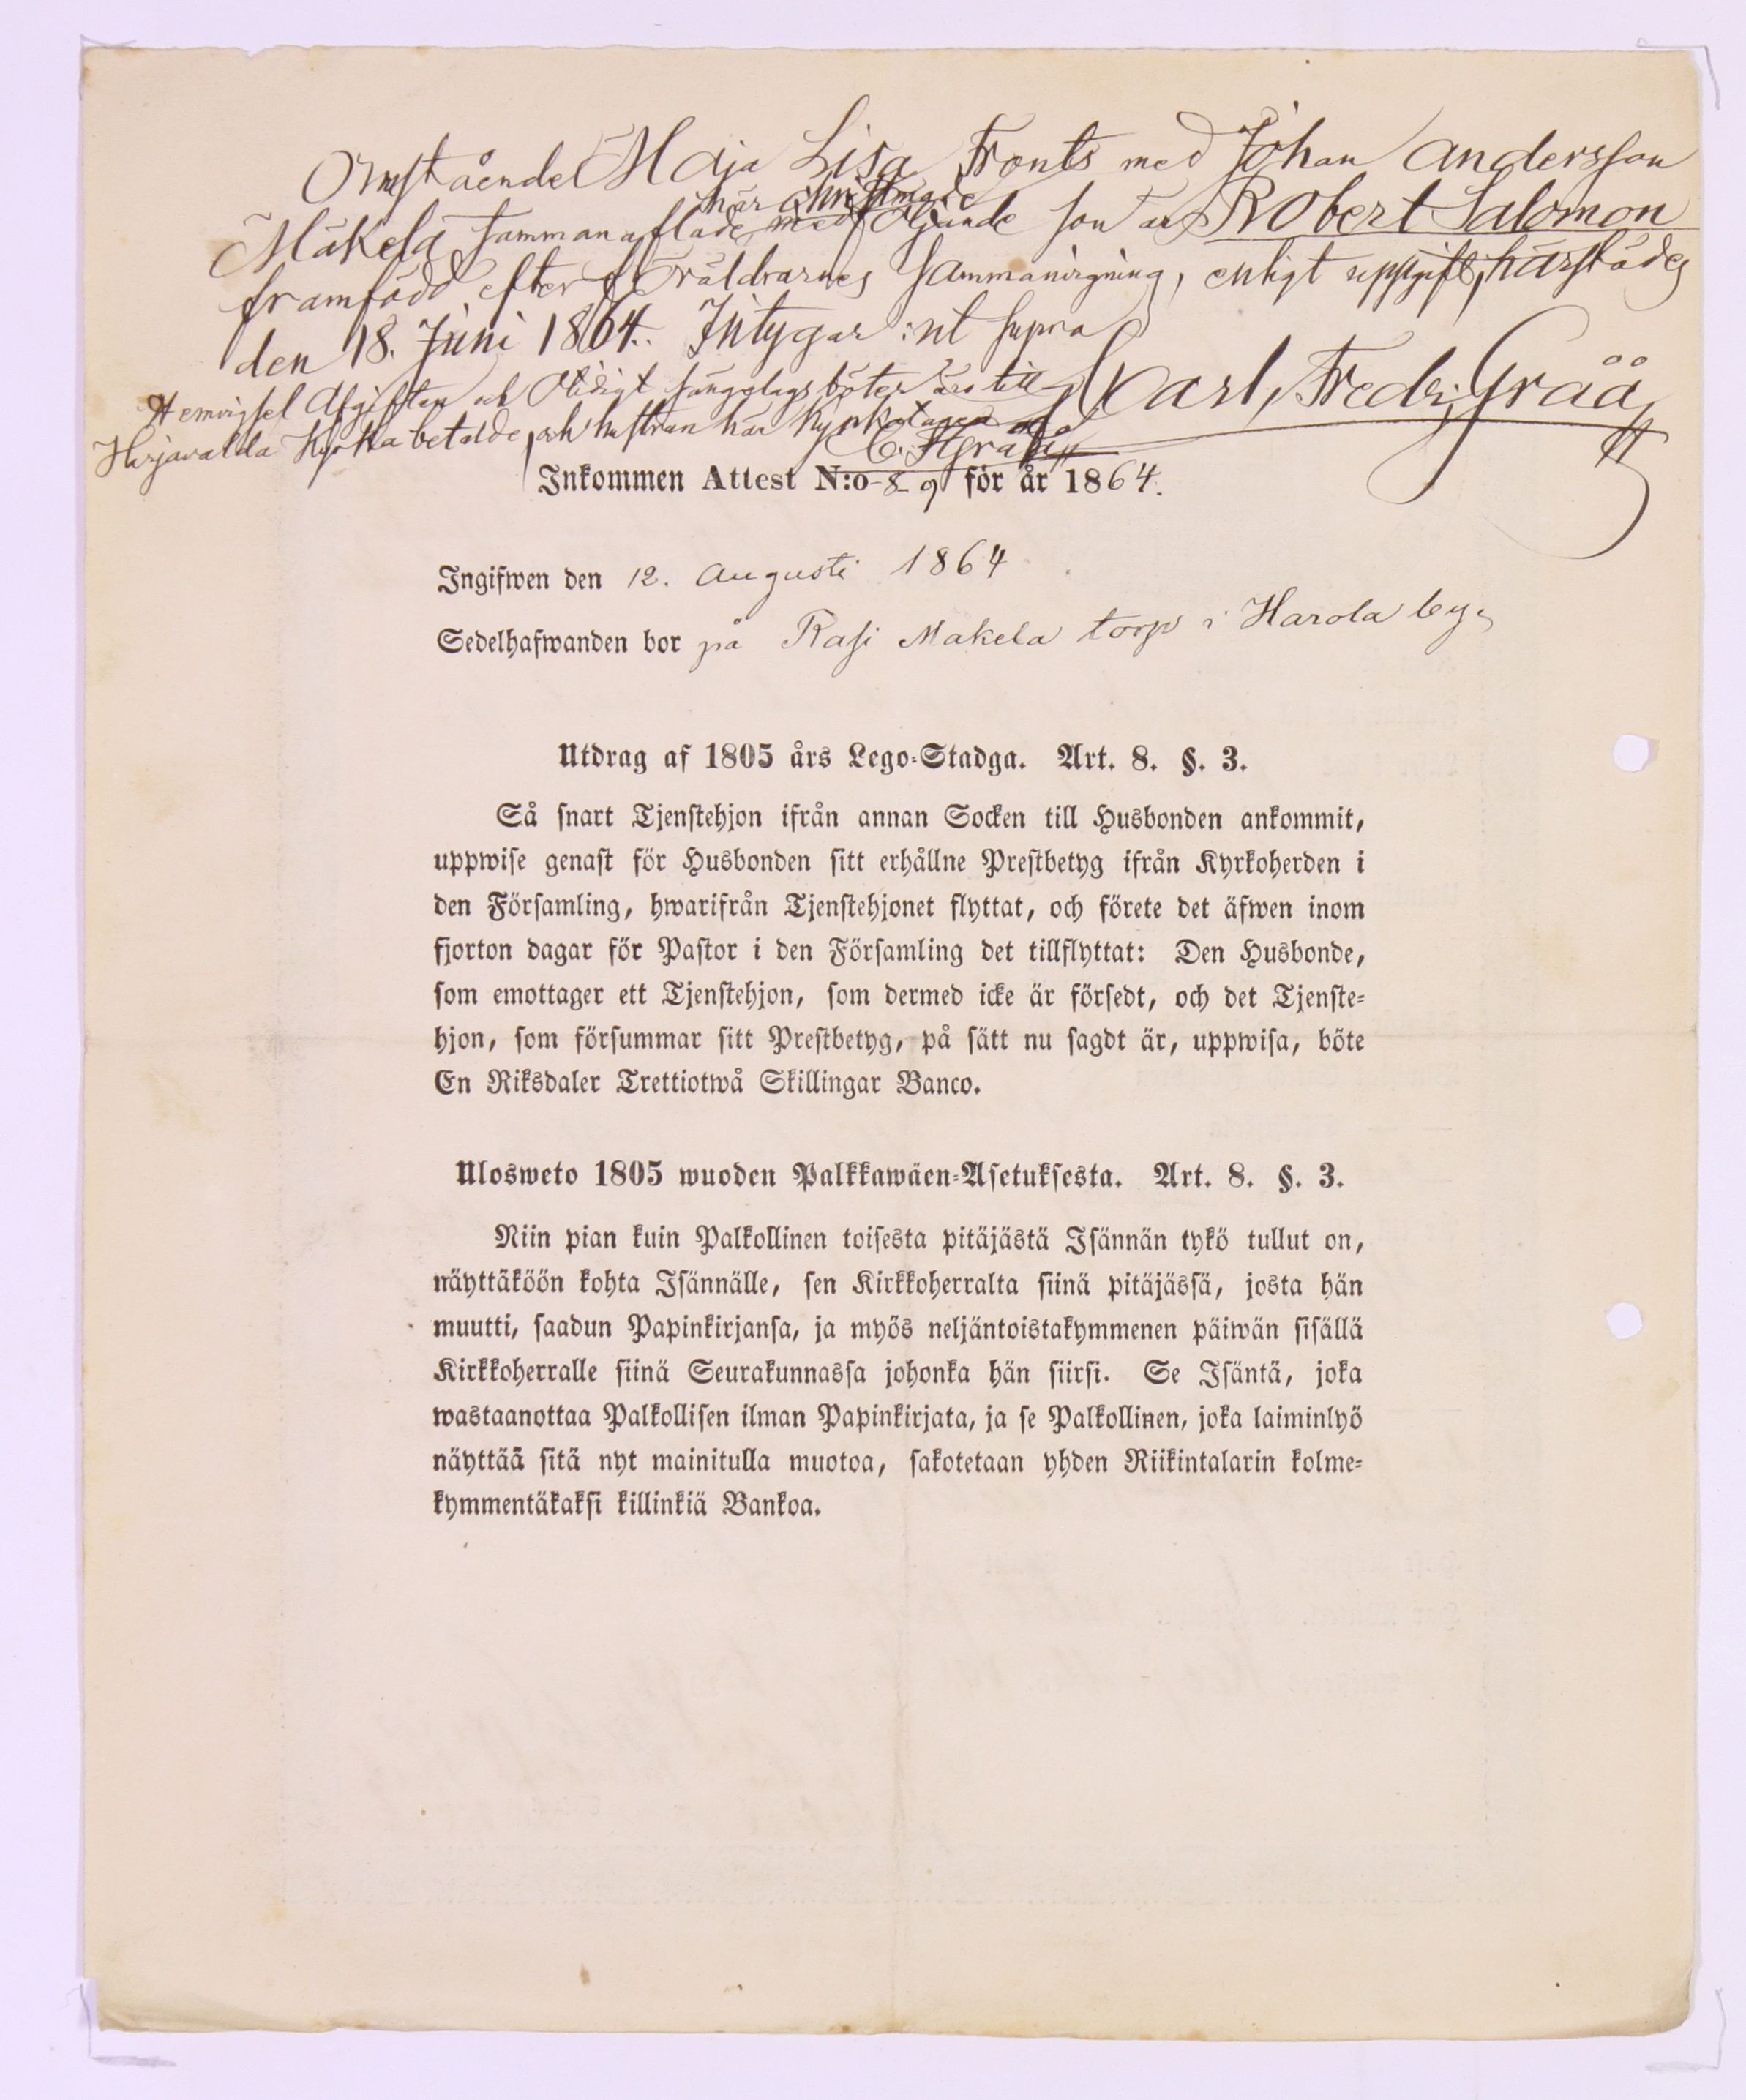 Omstående Maja Lisa Fronts med Johan Andersson
här christnade
Mäkelä sammanaflade medföljande son är Robert Salomon
framfödd efter föräldrarnes sammanvigning, enligt uppgift, härstädes
den 18. Juni 1864. Intygar: ut supra
Carl Fredr. Gråå
Hemvigsel Afgiften och Otidigt sängelags böter äro till
Harjavalda Kyrka betalde, och hustrun här kyrkotagen af
C. F. Gråå
Inkommen Attest N:o 89 för år 1864.
Ingifwen den 12. Augusti 1864
Sedelhafwanden bor på Rasi Mäkelä torp i Harola by.
Utdrag af 1805 års Lego-Stadga. Art. 8. §. 3.
Så snart Tjenstehjon ifrån annan Socken till Husbonden ankommit,
uppwise genast för Husbonden sitt erhållne Prestbetyg ifrån Kyrkoherden i
den Församling, hwarifrån Tjenstehjonet flyttat, och förete det äfwen inom
fjorton dagar för Pastor i den Församling det tillflyttat: Den Husbonde,
som emottager ett Tjenstehjon, som dermed icke är försedt, och det Tjenste-
hjon, som försummar sitt Prestbetyg, på sätt nu sagdt är, uppwisa, böte
En Riksdaler Trettiotwå Skillingar Banco.
Ulosweto 1805 wuoden Palkkawäen-Asetuksesta. Art. 8. §. 3.
Niin pian kuin Palkollinen toisesta pitäjästä Isännän tykö tullut on,
näyttäköön kohta Isännälle, sen Kirkkoherralta siinä pitäjässä, josta hän
muutti, saadun Papinkirjansa, ja myös neljäntoistakymmenen päiwän sisällä
Kirkkoherralle siinä Seurakunnassa johonka hän siirsi. Se Isäntä, joka
wastaanottaa Palkollisen ilman Papinkirjata, ja se Palkollinen, joka laiminlyö
näyttää sitä nyt mainitulla muotoa, sakotetaan yhden Riikintalarin kolme-
kymmentäkaksi killinkiä Bankoa.